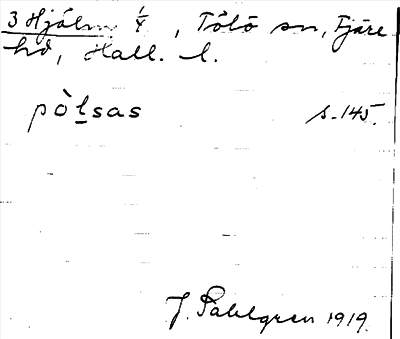 3 Hjälm 1/4, Tölö sn, Fjäre
hd, Hall. l.
pòḻsas s. 145.
J. Sahlgren 1919.